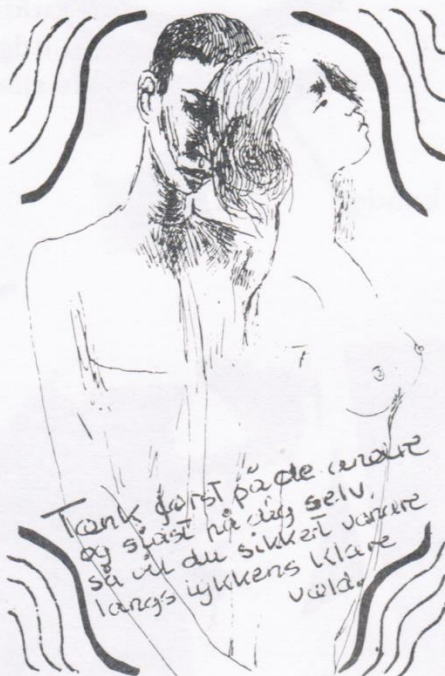 Tænk først på de andre
og sidst på dig selv,
så vil du sikkert vandre
langs lykkens klare
væld.